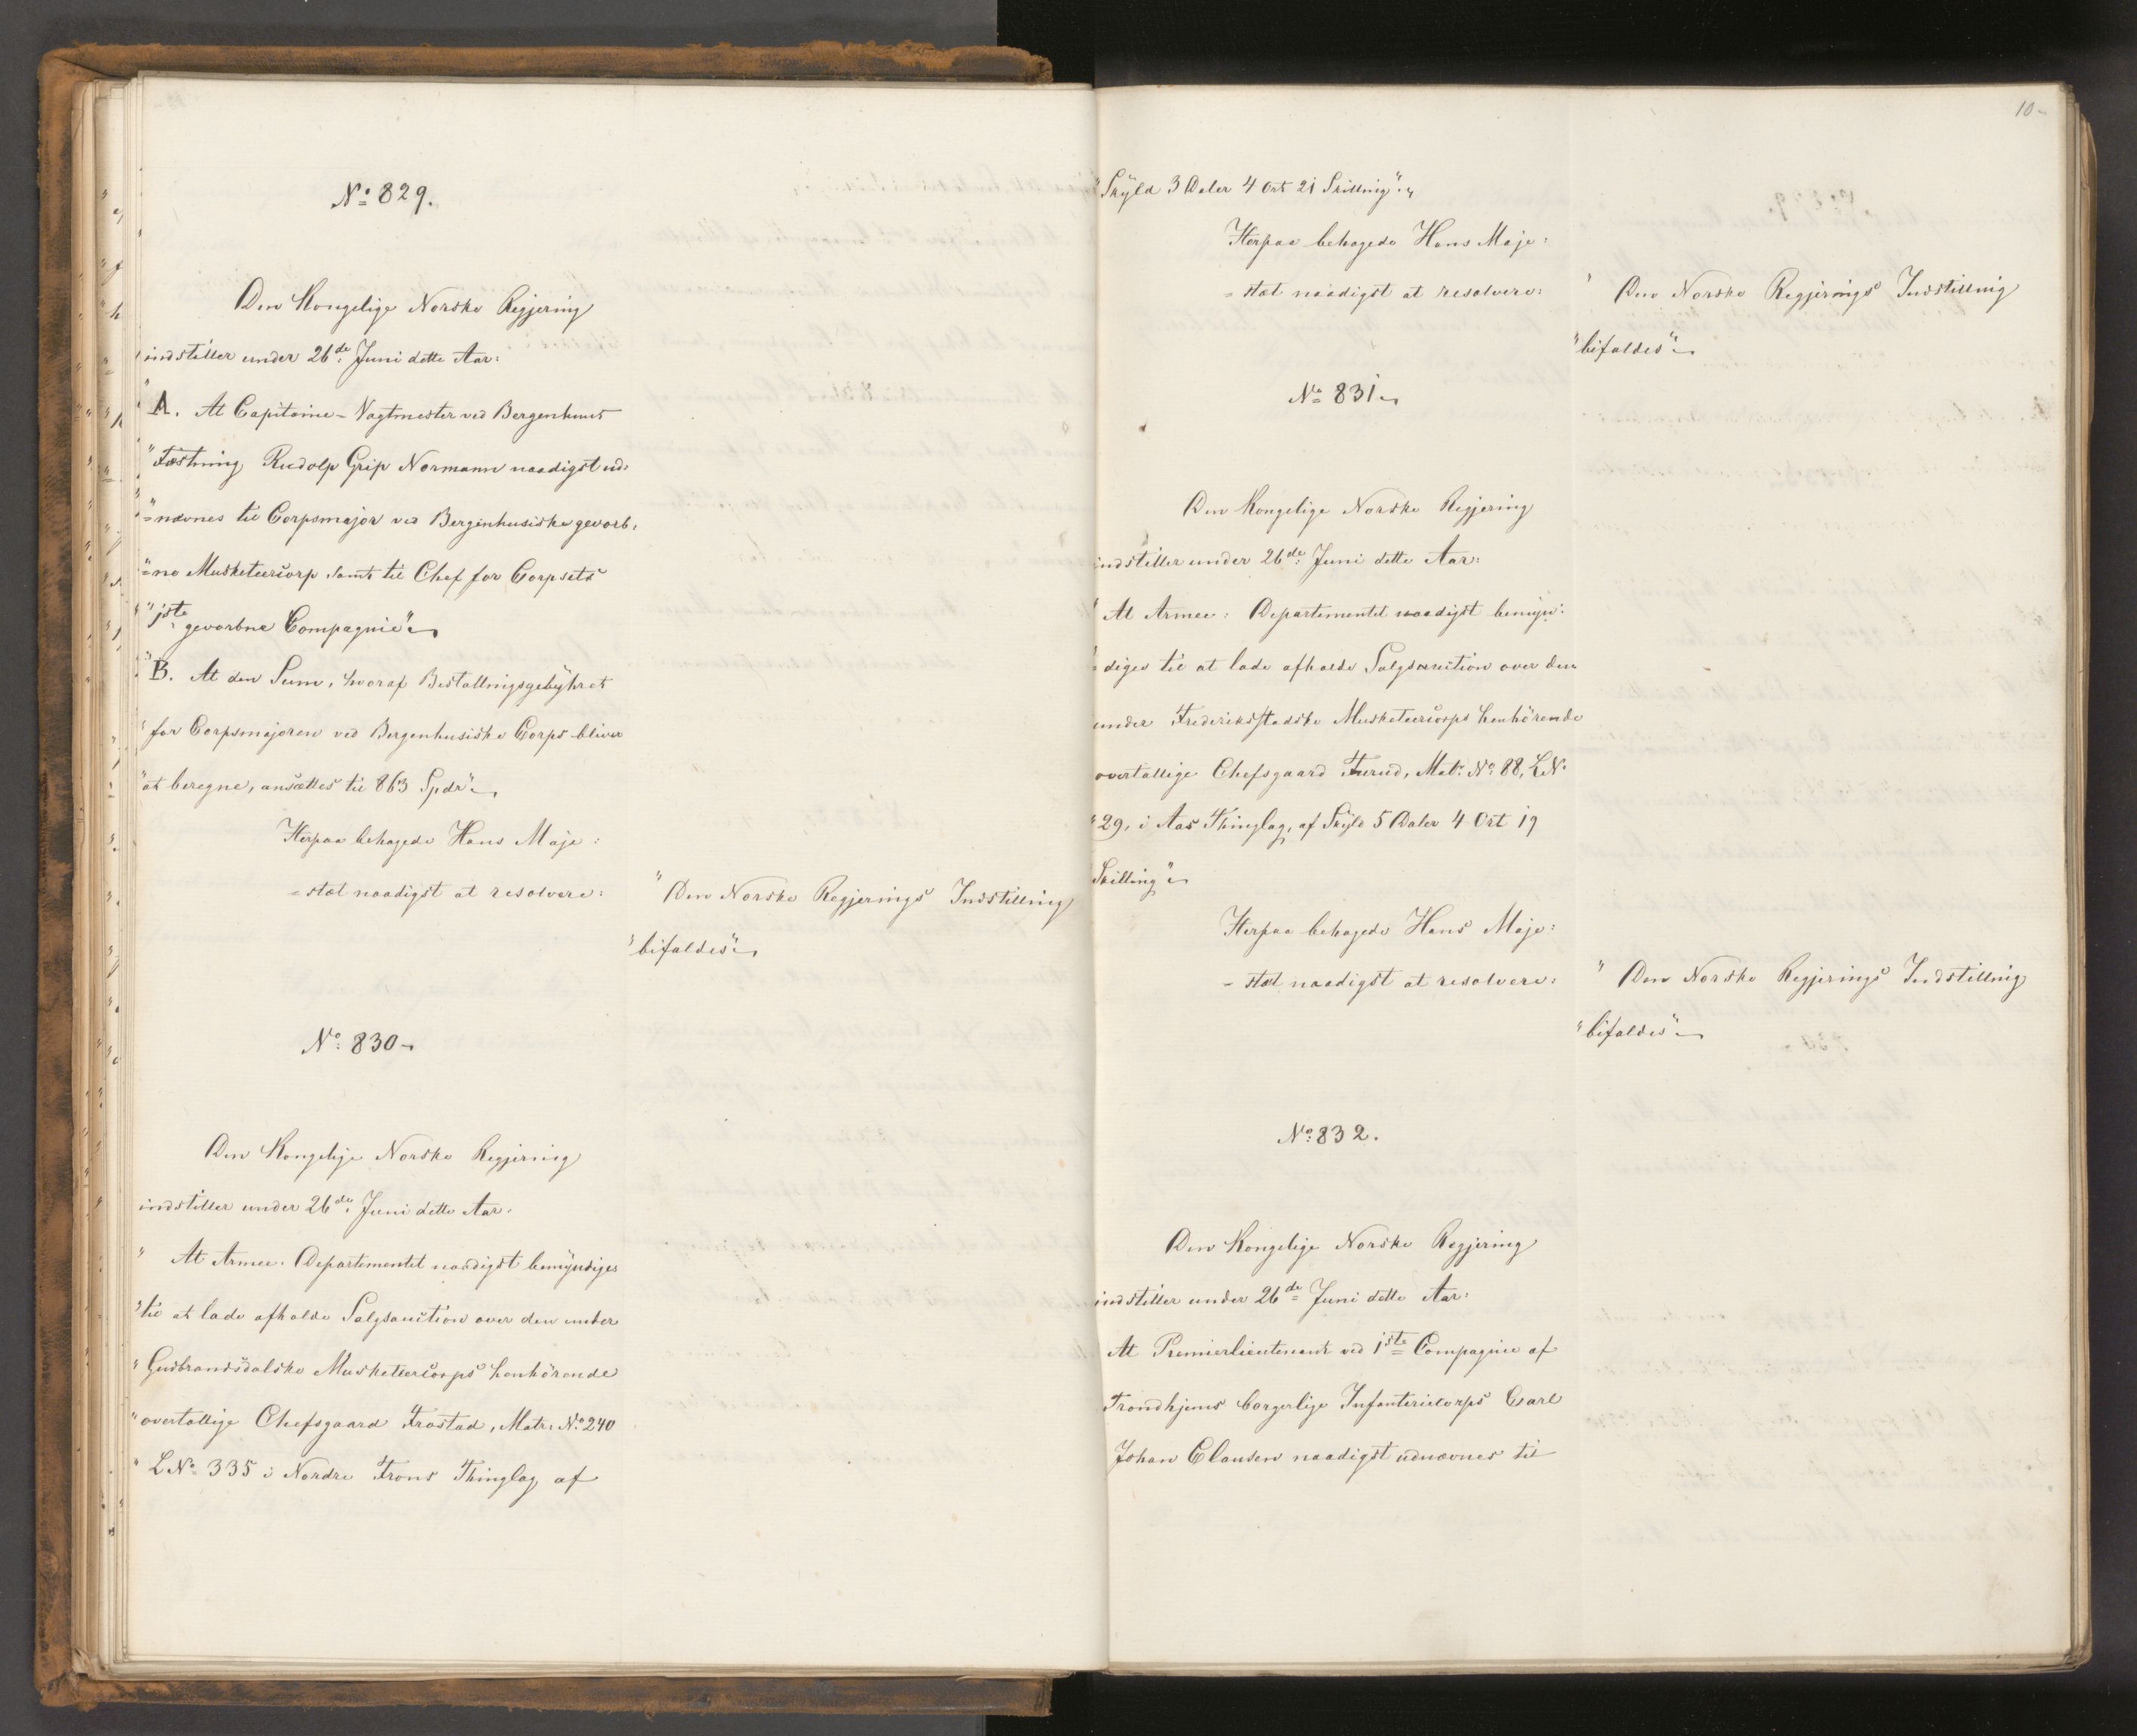 No 829.
Den Kongelige Norske Regjering
indstiller under 26de Juni dette Aar:
"A. At Capitaine-Vagtmester ved Bergenhuus
"Fæstning Rudolp Grip Normann naadigst ud:
"=nævnes til Corpsmajor ved Bergenhusiske gevorb,
"=ne Musketeercorp samt til Chef for Corpsets
"1ste gevorbne Compagnie"
"B. At den Sum, hvoraf Bestallingsgebyhret
"for Corpsmajoren ved Bergenhusiske Corps bliver
"at beregne, ansættes til 863 Spdr"
Herpaa behagede Hans Maje:
=stæt naadigst at resolvere:
"Den Norske Regjerings Indstilling
"bifaldes"
No 830
Den Kongelige Norske Regjering
indstiller under 26de Juni dette Aar:
" At Armee: Departementet naadigst bemyndiges
"til at lade afholde Salgsauction over den under
"Gudbrandsdalske Musketeercorps henhörende
"overtallige Chefsgaard Frastad, Matr. No 240
"LNo 335 i Nordre Frons Thinglag af
10
"Skyld 3 Daler 4 Ort 21 Skilling".
Herpaa behagede Hans Maje:
=stæt naadigst at resolvere:
" Den Norske Regjerings Indstilling
"bifaldes"
No 831
Den Kongelige Norske Regjering
indstiller under 26de Juni dette Aar:
" At Armee: Departementet naadigst bemyn:
"=diges til at lade afholde Salgsauction over den
under Frederiksstadske Musketeercorps henhörende
overtallige Chefsgaard Furud, Matr. No 88, LNo
"29, i Aas Thinglag, af Skyld 5 Daler 4 Ort 19
Skilling"
Herpaa behagede Hans Maje:
=stæt naadigst at resolvere:
" Den Norske Regjerings Indstilling
"bifaldes"
No 832.
Den Kongelige Norske Regjering
indstiller under 26de Juni dette Aar:
At Premierlieutenant ved 1ste Compagnie af
Trondhjems borgerlige Infanteriecorps Carl
Johan Clausen naadigst udnævnes til